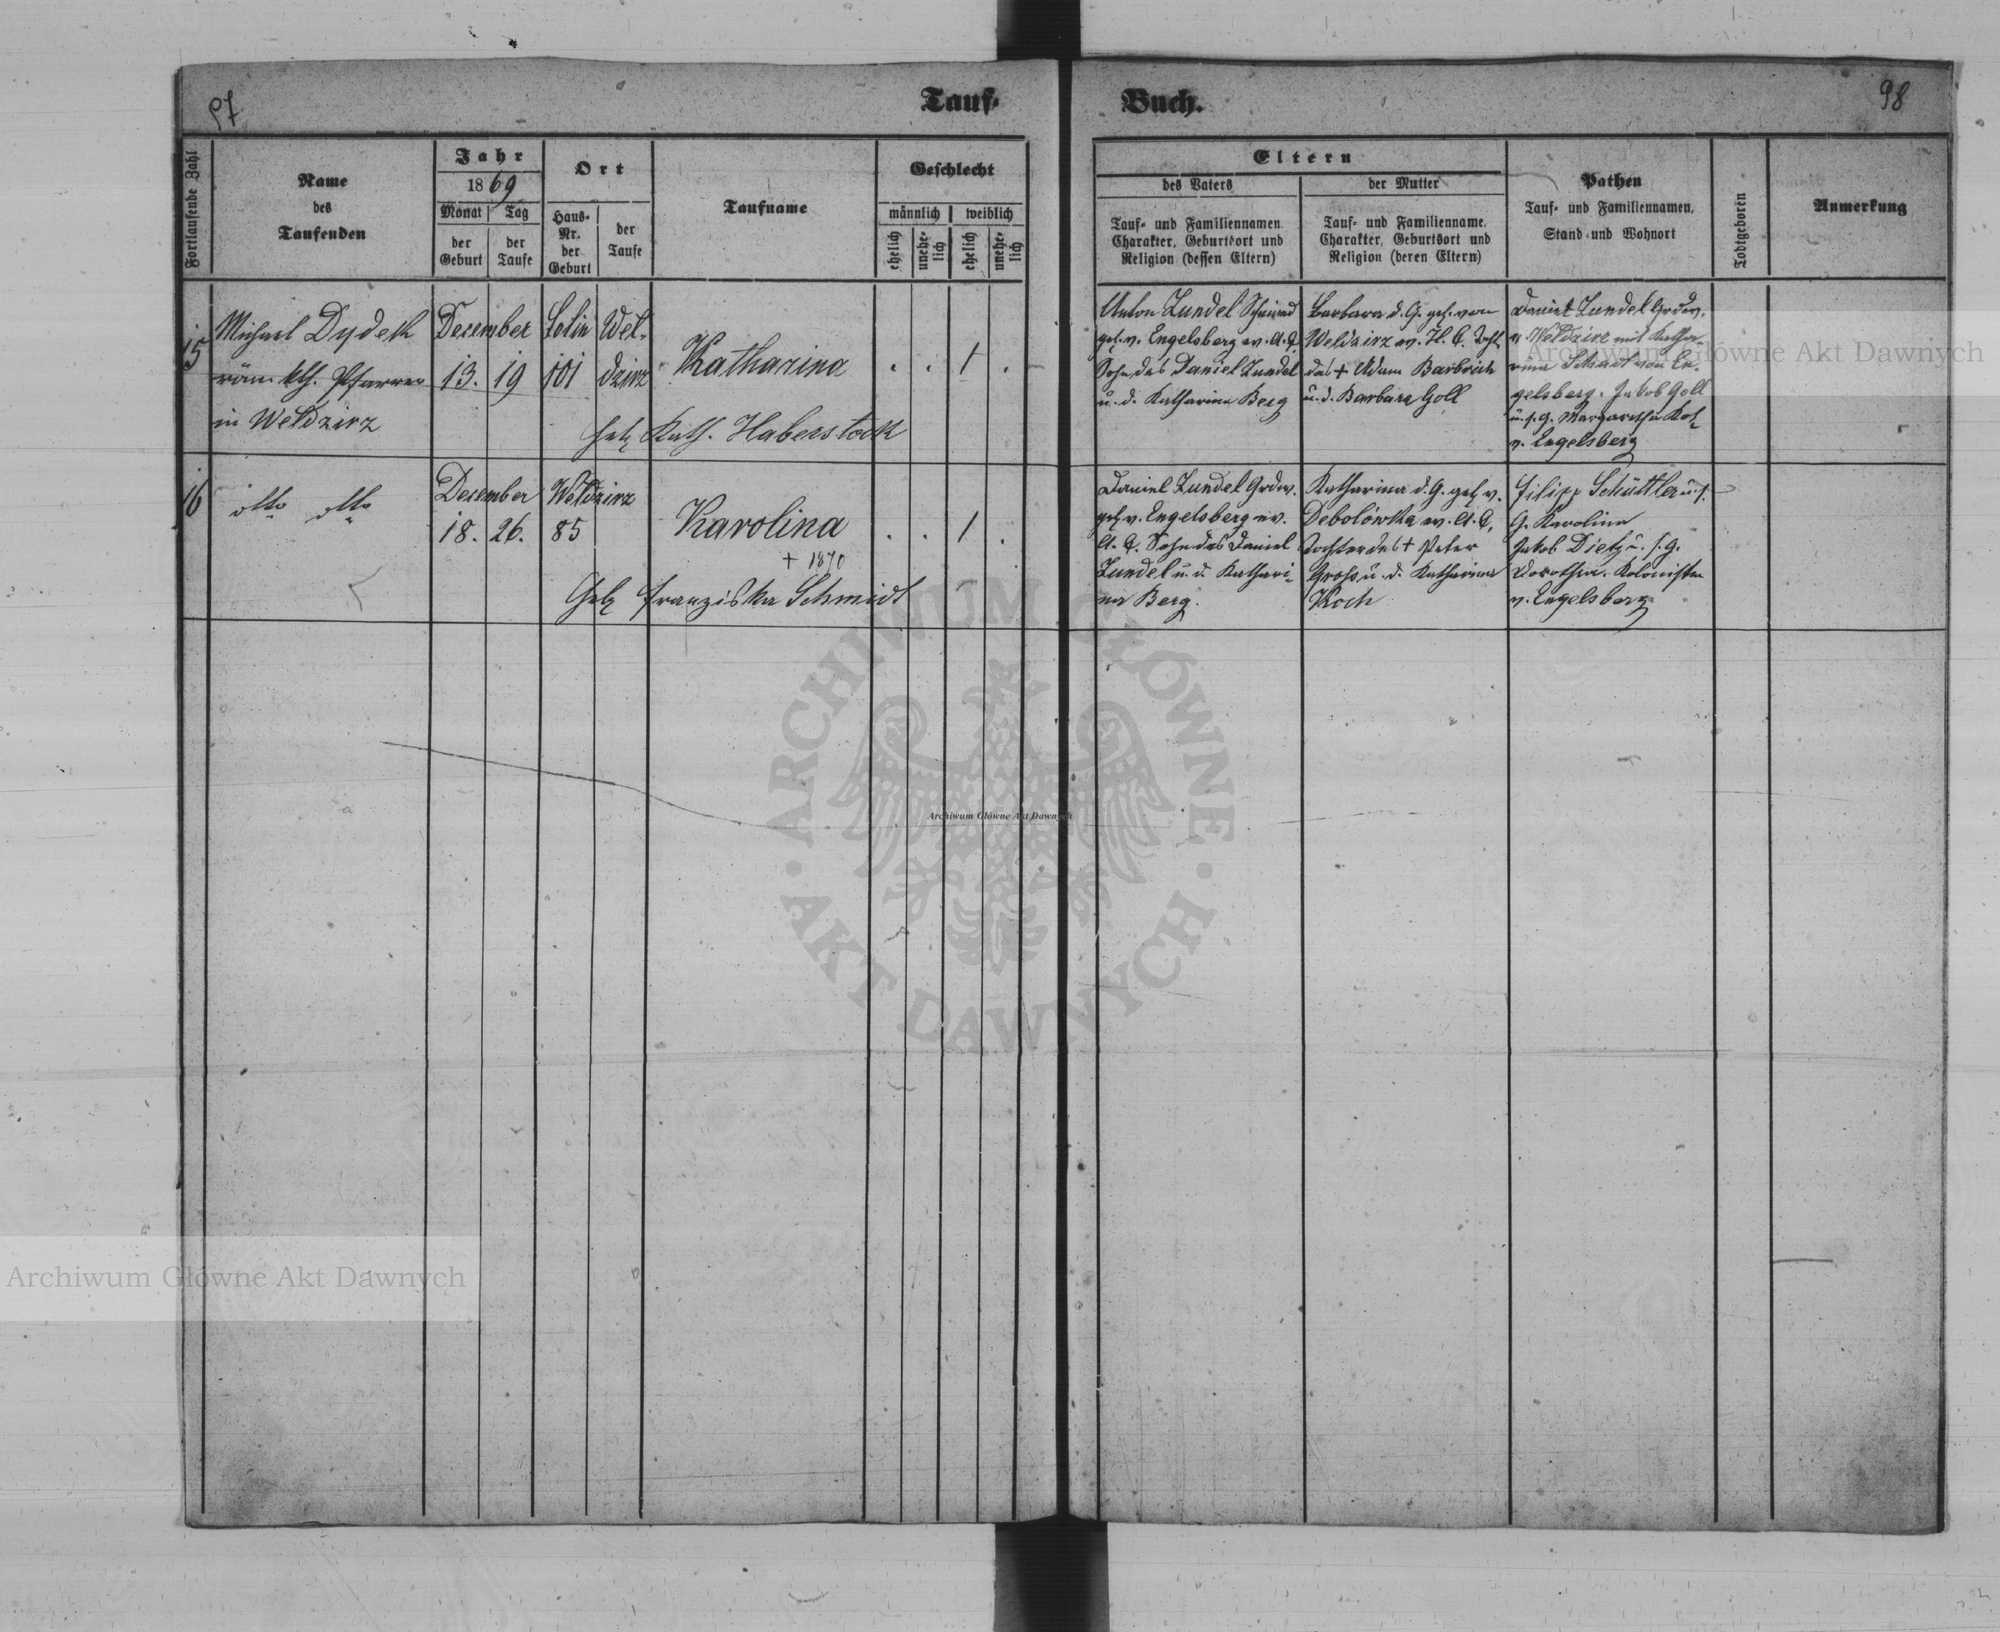 97
Tauf-
Buch.
98
Fortlaufende Zahl
Name
des
Taufenden
Jahr
1869
Monat
Tag
der
Geburt
der
Taufe
Ort
Haus-
Nr.
der
Geburt
der
Taufe
Taufname
Geschlecht
männlich
weiblich
ehelich
unehe-
lich
ehelich
unehe-
lich
Eltern
des Vaters
Tauf- und Familiennamen
Charakter, Geburtsort und
Religion (dessen Eltern)
der Mutter
Tauf- und Familienname.
Charakter, Geburtsort und
Religion (deren Eltern)
Pathen
Tauf- und Familiennamen,
Stand und Wohnort
Todtgeboren
Anmerkung
15
Michael Dydek
röm. kth. Pfarrer
in Weldzirz
December
13. 19
101
Wel-
dzirz
Katharina
1
heb. Kath. Haberstock
Anton Zundel Schmied
geb. v. Engelsberg ev. A. C.
Sohn des Daniel Zundel
u. d. Katharina Berg
Barbara d. G. geb. von
Weldzirz ev. H. C. Toch.
des + Adam
u. d. Barbara Goll
Daniel Zundel Grdw.
v. Weldzirz mit Katha-
rina Schadt von En-
gelsberg. Jakob Goll
u. s. G. Margaretha
v. Engelsberg
16
dtto dtto
December
18. 26.
Weldzirz
85
Karolina
+ 1870
1
Heb. Franziska Schmidt
Daniel Zundel Grdw.
geb. v. Engelsberg ev.
A. C. Sohn des Daniel
Zundel u. d. Kathari-
na Berg.
Katharina d. G. geb. v.
Debolówka ev. A. C.
Tochter des + Peter
Gross u. d. Katharina
Koch
Filipp Schüttler u. s.
G. Karolina
Jakob Dietz u. s. G.
Dorothea. Kolonisten
v. Engelsberg
Archiwum Główne Akt Dawnych
ARCHIWUM GŁÓWNE
AKT DAWNYCH
Archiwum Główne Akt Dawnych
Archiwum Główne Akt Dawnych